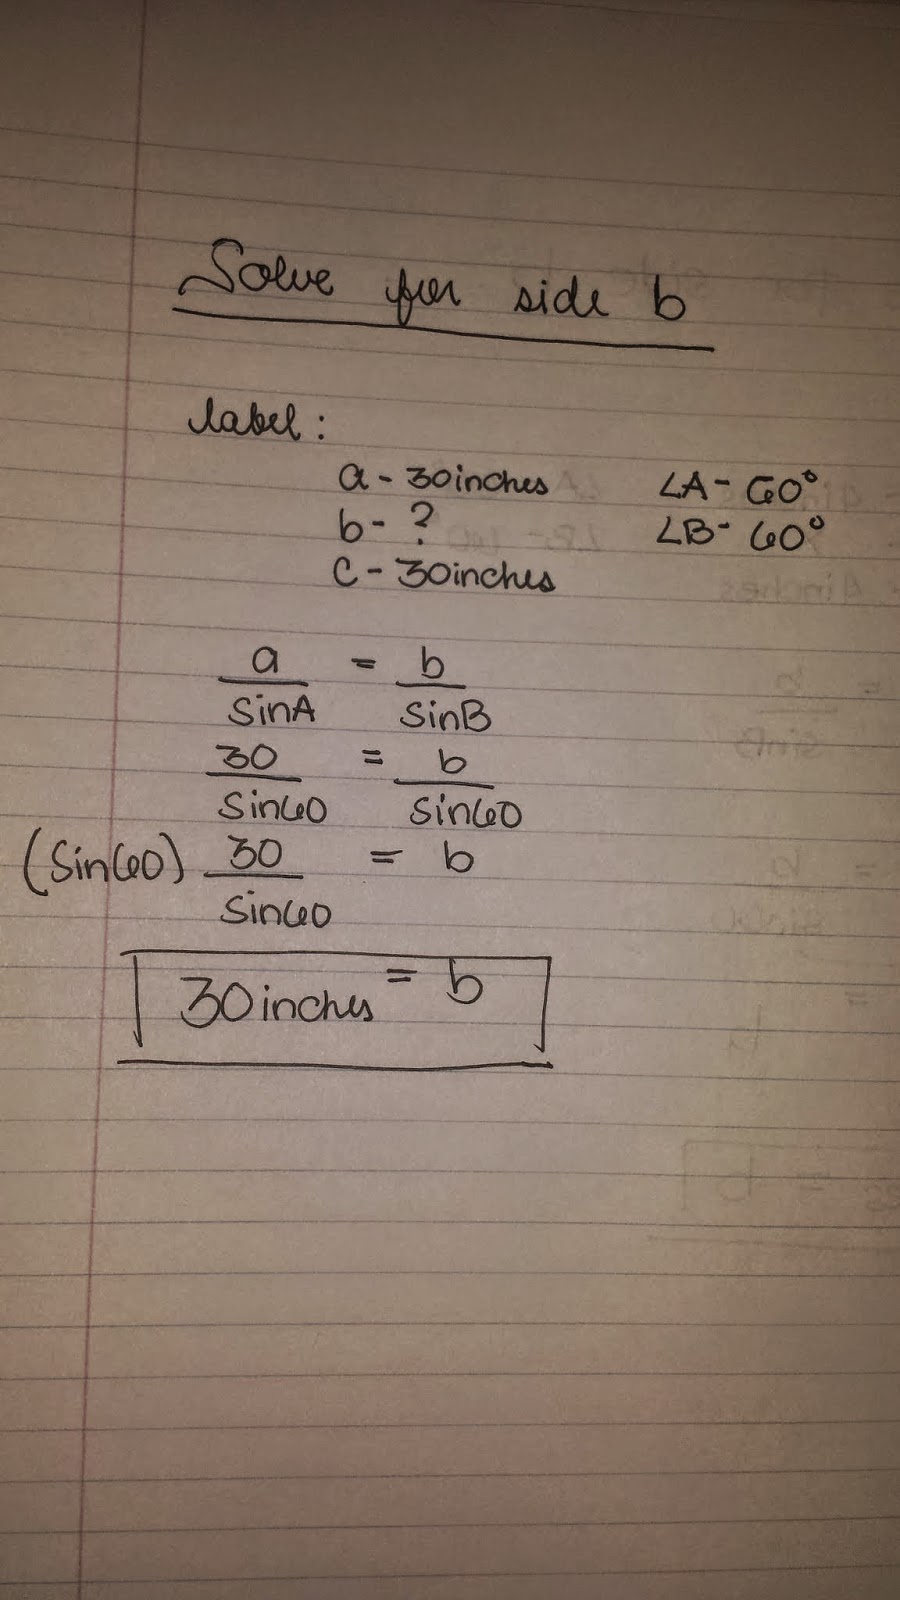 Solve for side b
label:
a - 30inches ∠A- 60°
b - ? ∠B- 60°
c - 30inches
a = b
sinA sinB
30 = b
sin60 sin60
(sin60) 30 = b
sin60
30inches = b